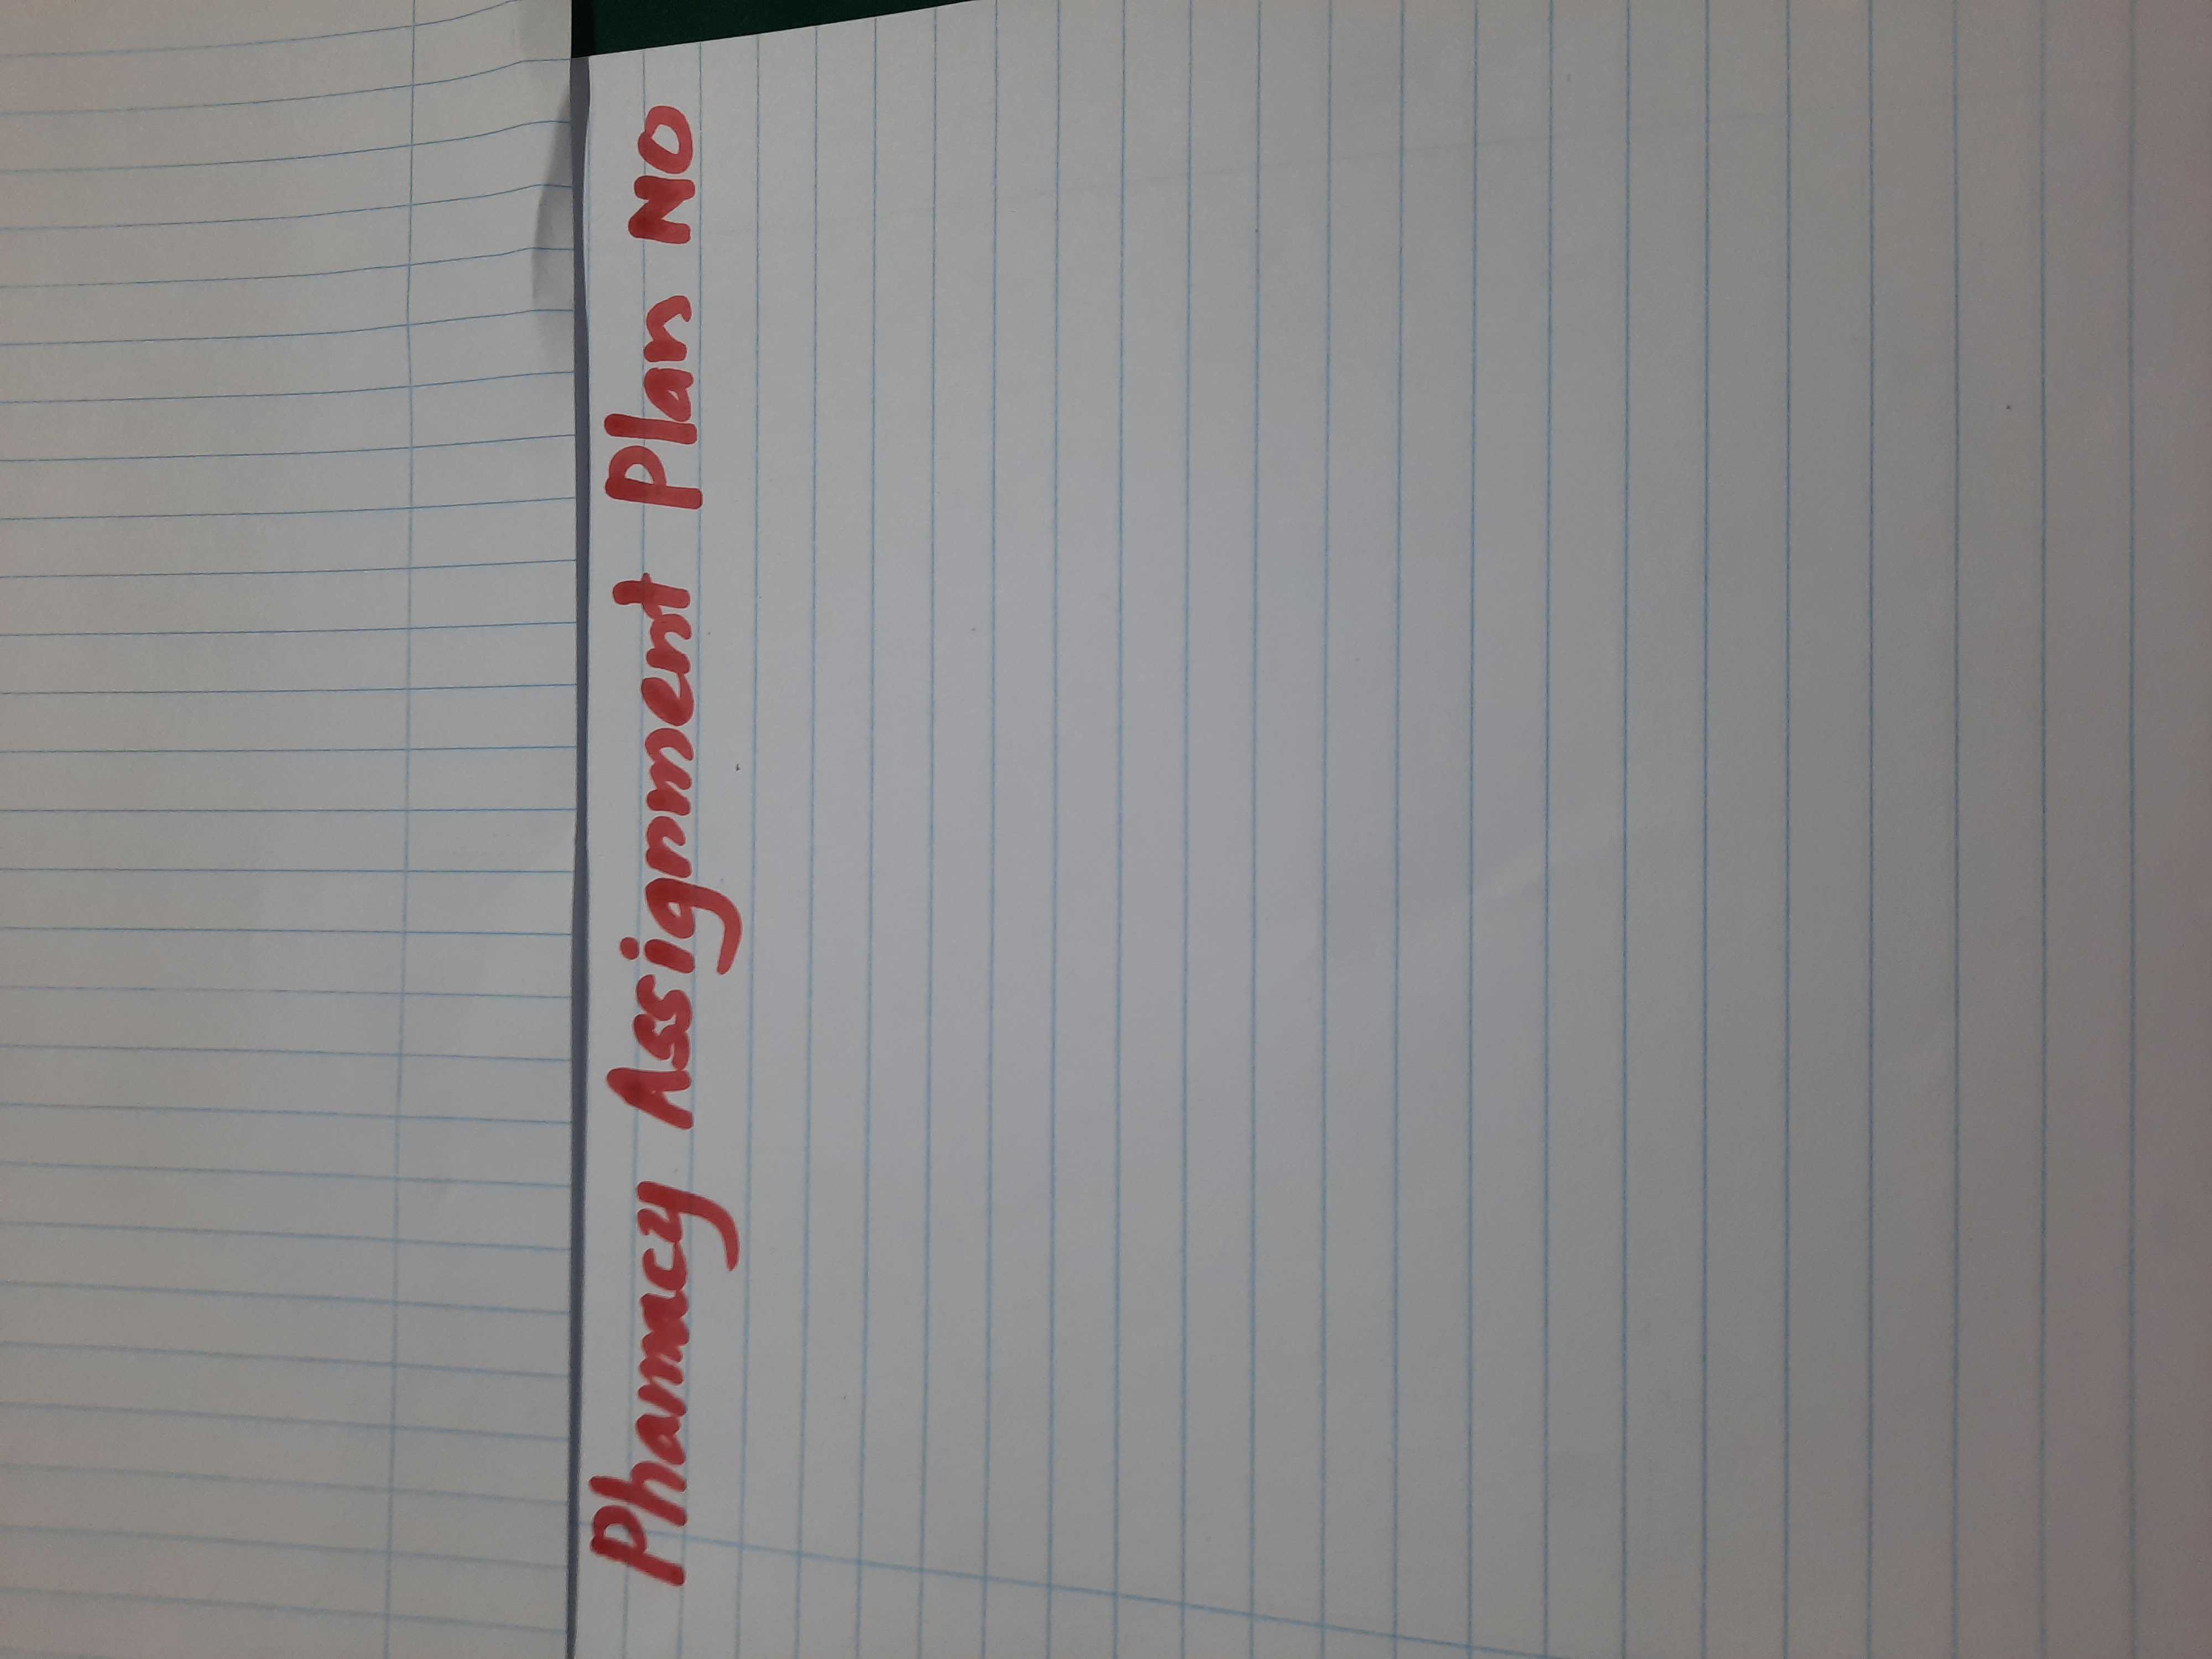 Phamacy Assignment Plan NO